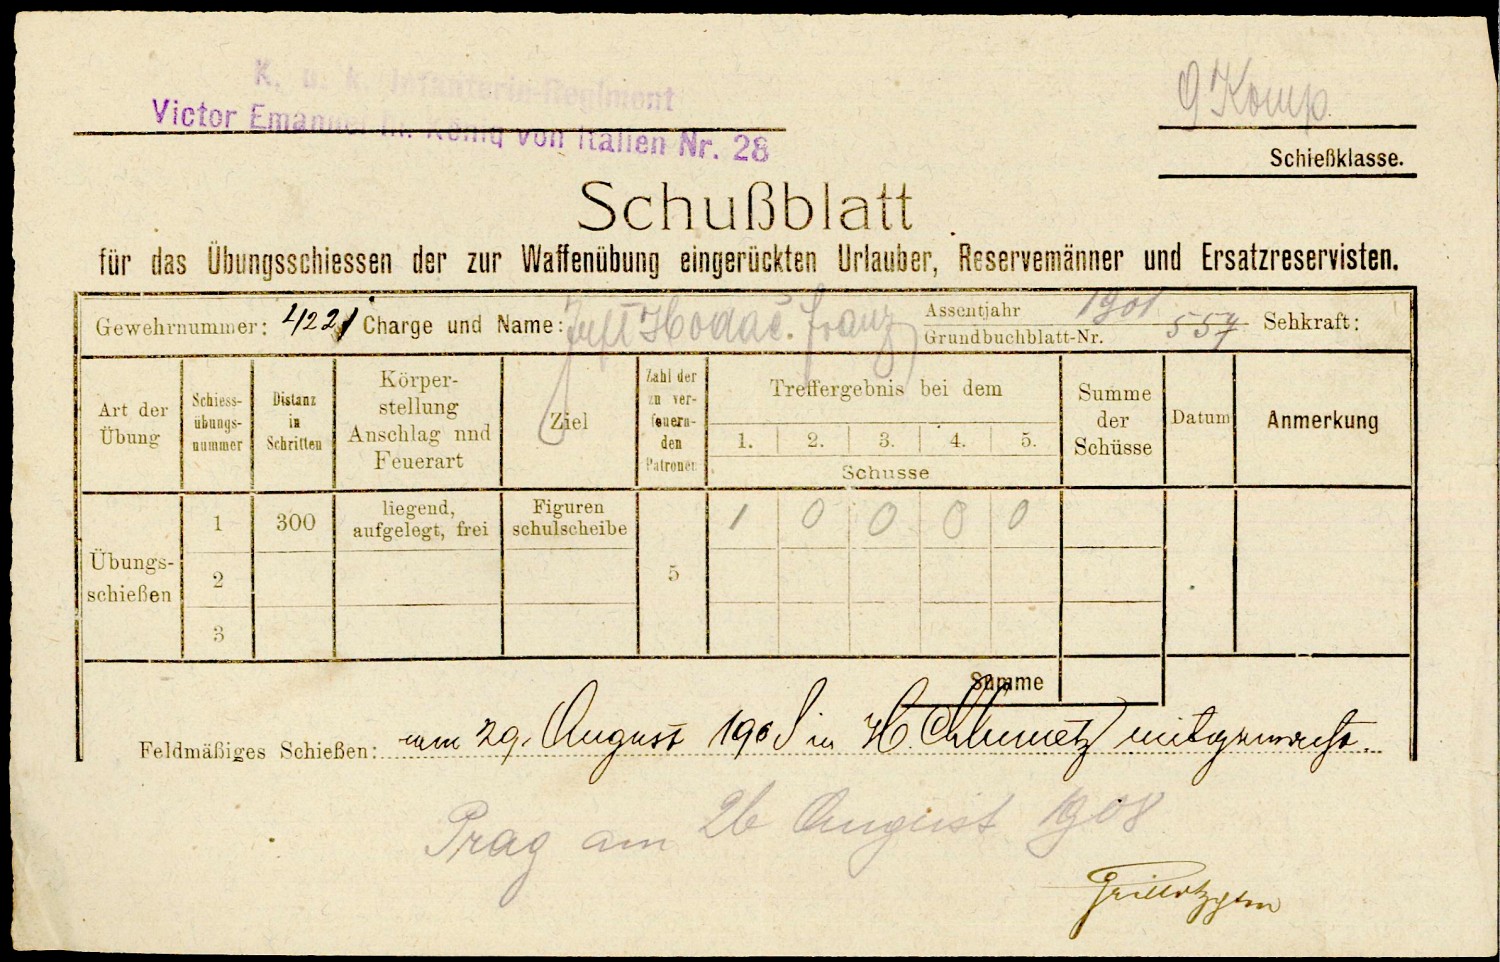 K. u. k. Infanterie-Regiment
Victor Emanuel III. König von Italien Nr. 28
9 Komp.
Schießklasse.
Schußblatt
für das Übungsschiessen der zur Waffenübung eingerückten Urlauber, Reservemänner und Ersatzreservisten.
Gewehrnummer: 4221 Charge und Name: Hodač Franz
Assentjahr 1901
Grundbuchblatt-Nr. 557
Sehkraft:
Art der Übung
Schiess-übungs-nummer
Distanz in Schritten
Körper-stellung Anschlag nnd Feuerart
Ziel
Zahl der zu ver-feuern-den Patronen
Treffergebnis bei dem
1. 2. 3. 4. 5.
Schusse
Summe der Schüsse
Datum
Anmerkung
Übungs-schießen
1 300 liegend, aufgelegt, frei Figuren schulscheibe 1 0 0 0 0
2 5
3
Summe
Feldmäßiges Schießen: am 29. August 1908 in H. mitgemacht.
Prag am 26 August 1908